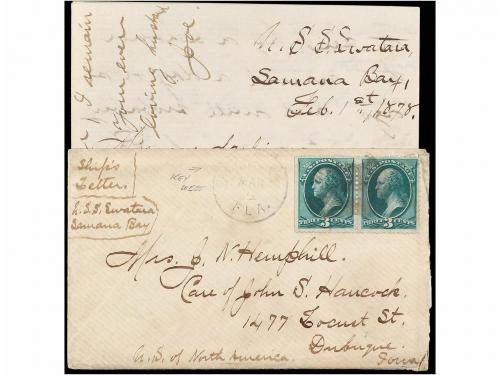 U.S.S. Swatara,
Samana Bay,
Feb. 1st, 1878.
, I remain
your ever
loving husband
Joe.
Ship's
Letter.
U.S.S. Swatara
Samana Bay
KEY
WEST
MAR
FLA.
U.S. POSTAGE
THREE 3 CENTS
U.S. POSTAGE
THREE 3 CENTS
Mrs. J. N. Hemphill.
Care of John S. Hancock.
1477 Locust St.
Dubuque.
Iowa
U.S. of North America.